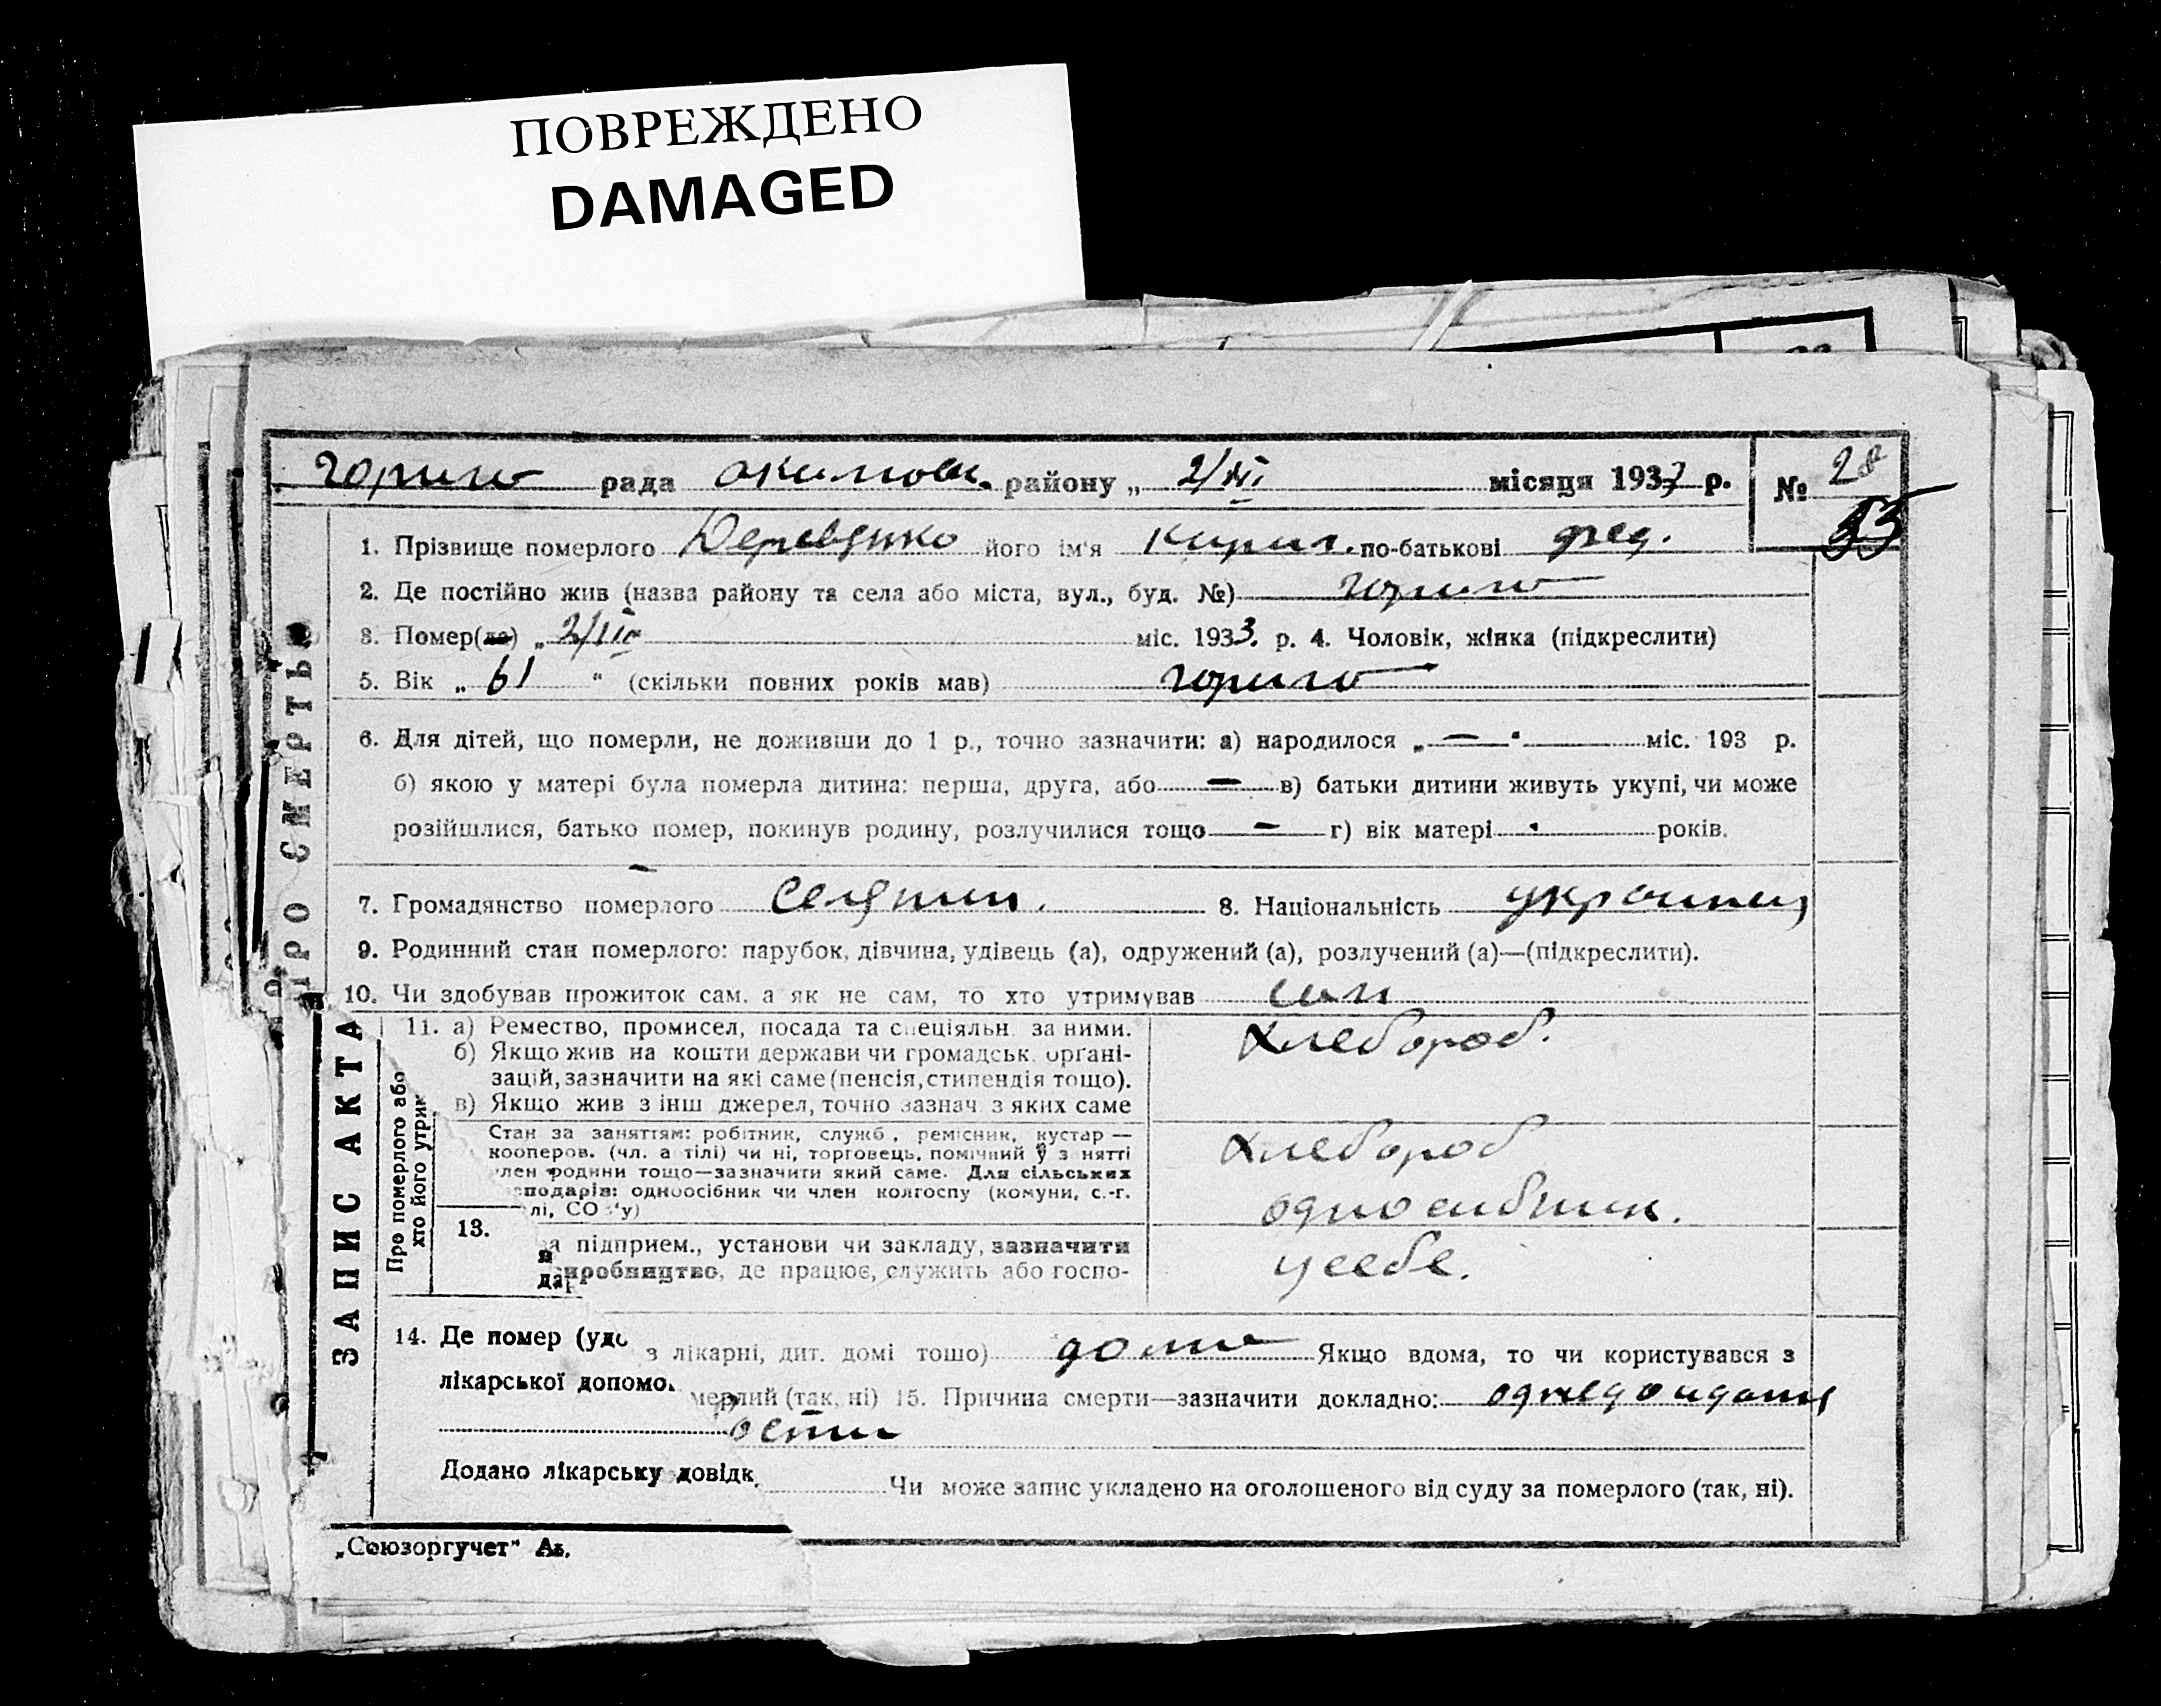 ПОВРЕЖДЕНО
DAMAGED
рада района „ 2/ місяця 193 р. № 28
55
1. Прізвище померлого Деревянко його ім'я Кирил. по-батькові фед.
2. Де постійно жив (назва району та села або міста, вул., буд. №)
3. Помер(ла) „ міс. 1933. р. 4. Чоловік, жінка (підкреслити)
5. Вік „ 61 “ (скільки повних років мав)
6. Для дітей, що померли, не доживши до 1 р., точно зазначити: а) народилося „ — “ міс. 193 р.
б) якою у матері була померла дитина: перша, друга, або — в) батьки дитини живуть укупі, чи може
розійшлися, батько помер, покинув родину, розлучилися тощо — г) вік матері років.
7. Громадянство померлого селянин. 8. Національність украинец
9. Родинний стан померлого: парубок, дівчина, удівець (а), одружений (а), розлучений (а)—(підкреслити).
10. Чи здобував прожиток сам, а як не сам, то хто утримував сам
11. а) Ремество, промисел, посада та спеціяльн. за ними. хлебороб.
б) Якщо жив на кошти держави чи громадськ. органі-
зацій, зазначити на які саме (пенсія, стипендія тощо).
в) Якщо жив з інш джерел, точно зазнач. з яких саме
Стан за заняттям: робітник, служб., ремісник, кустар — хлебороб
кооперов. (чл. а тілі) чи ні, торговець, помічний у з нятті
лен родини тощо—зазначити який саме. Для сільських
сподарів: одноосібник чи член колгоспу (комуни, с.-г. односибник.
лі, СО у)
13. а підприєм., установи чи закладу, зазначити у себе.
я
виробництво, де працює, служить або госпо-
дар
14. Де помер (удо з лікарні, дит. домі тощо) дома Якщо вдома, то чи користувався з
лікарської допомо мерлий (так, ні) 15. Причина смерти—зазначити докладно:
Додано лікарську довідк Чи може запис укладено на оголошеного від суду за померлого (так, ні).
„Союзоргучет“
ЗАПИС АКТА
ПРО СМЕРТЬ
Про померлого або
хто його утрим